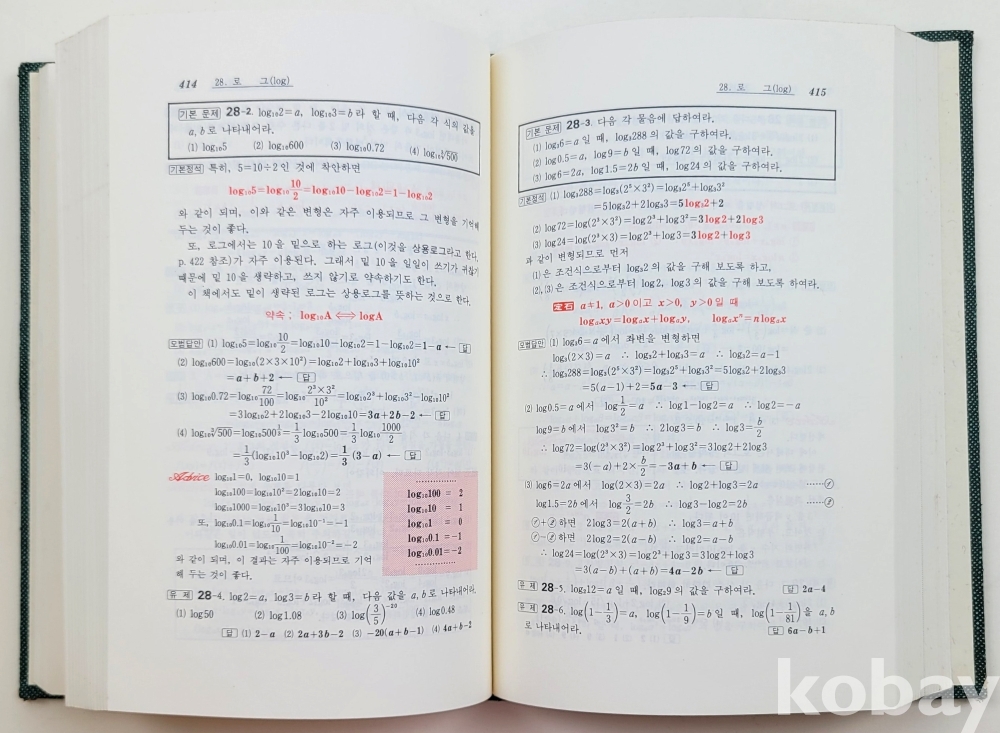 414
28. 로 그(log)
기본 문제 28-2. log₁₀2=a, log₁₀3=b라 할 때, 다음 각 식의 값을
a, b로 나타내어라.
(1) log₁₀5 (2) log₁₀600 (3) log₁₀0.72 (4) log₁₀∛500
기본정석 특히, 5=10÷2인 것에 착안하면
log₁₀5=log₁₀10/2=log₁₀10−log₁₀2=1−log₁₀2
와 같이 되며, 이와 같은 변형은 자주 이용되므로 그 변형을 기억해
두는 것이 좋다.
또, 로그에서는 10을 밑으로 하는 로그(이것을 상용로그라고 한다.
p. 422 참조)가 자주 이용된다. 그래서 밑 10을 일일이 쓰기가 귀찮기
때문에 밑 10을 생략하고, 쓰지 않기로 약속하기도 한다.
이 책에서도 밑이 생략된 로그는 상용로그를 뜻하는 것으로 한다.
약속 ; log₁₀A ⟺ logA
모범답안 (1) log₁₀5=log₁₀10/2=log₁₀10−log₁₀2=1−log₁₀2=1−a ← 답
(2) log₁₀600=log₁₀(2×3×10²)=log₁₀2+log₁₀3+log₁₀10²
=a+b+2 ← 답
(3) log₁₀0.72=log₁₀72/100=log₁₀2³×3²/10²=log₁₀2³+log₁₀3²−log₁₀10²
=3log₁₀2+2log₁₀3−2log₁₀10=3a+2b−2 ← 답
(4) log₁₀∛500=log₁₀500^(1/3)=1/3log₁₀500=1/3log₁₀1000/2
=1/3(log₁₀10³−log₁₀2)=1/3(3−a) ← 답
Advice log₁₀1=0, log₁₀10=1
log₁₀100=log₁₀10²=2log₁₀10=2
log₁₀1000=log₁₀10³=3log₁₀10=3
또, log₁₀0.1=log₁₀1/10=log₁₀10⁻¹=−1
log₁₀0.01=log₁₀1/100=log₁₀10⁻²=−2
와 같이 되며, 이 결과는 자주 이용되므로 기억
해 두는 것이 좋다.
··············
log₁₀100 = 2
log₁₀10 = 1
log₁₀1 = 0
log₁₀0.1 =−1
log₁₀0.01=−2
··············
유 제 28-4. log2=a, log3=b라 할 때, 다음 값을 a, b로 나타내어라.
(1) log50 (2) log1.08 (3) log(3/5)⁻²⁰ (4) log0.48
답 (1) 2−a (2) 2a+3b−2 (3) −20(a+b−1) (4) 4a+b−2
28. 로 그(log)
415
기본 문제 28-3. 다음 각 물음에 답하여라.
(1) log₃6=a일 때, log₃288의 값을 구하여라.
(2) log0.5=a, log9=b일 때, log72의 값을 구하여라.
(3) log6=2a, log1.5=2b일 때, log24의 값을 구하여라.
기본정석 (1) log₃288=log₃(2⁵×3²)=log₃2⁵+log₃3²
=5log₃2+2log₃3=5log₃2+2
(2) log72=log(2³×3²)=log2³+log3²=3log2+2log3
(3) log24=log(2³×3)=log2³+log3=3log2+log3
과 같이 변형되므로 먼저
(1)은 조건식으로부터 log₃2의 값을 구해 보도록 하고,
(2), (3)은 조건식으로부터 log2, log3의 값을 구해 보도록 하여라.
定石 a≠1, a>0이고 x>0, y>0일 때
logₐxy=logₐx+logₐy, logₐxⁿ=nlogₐx
모범답안 (1) log₃6=a에서 좌변을 변형하면
log₃(2×3)=a ∴ log₃2+log₃3=a ∴ log₃2=a−1
∴ log₃288=log₃(2⁵×3²)=log₃2⁵+log₃3²=5log₃2+2log₃3
=5(a−1)+2=5a−3 ← 답
(2) log0.5=a에서 log1/2=a ∴ log1−log2=a ∴ log2=−a
log9=b에서 log3²=b ∴ 2log3=b ∴ log3=b/2
∴ log72=log(2³×3²)=log2³+log3²=3log2+2log3
=3(−a)+2×b/2=−3a+b ← 답
(3) log6=2a에서 log(2×3)=2a ∴ log2+log3=2a ……㉮
log1.5=2b에서 log3/2=2b ∴ log3−log2=2b ……㉯
㉮+㉯하면 2log3=2(a+b) ∴ log3=a+b
㉮−㉯하면 2log2=2(a−b) ∴ log2=a−b
∴ log24=log(2³×3)=log2³+log3=3log2+log3
=3(a−b)+(a+b)=4a−2b ← 답
유 제 28-5. log₂12=a일 때, log₂9의 값을 구하여라. 답 2a−4
유 제 28-6. log(1−1/3)=a, log(1−1/9)=b일 때, log(1−1/81)을 a, b
로 나타내어라. 답 6a−b+1
kobay